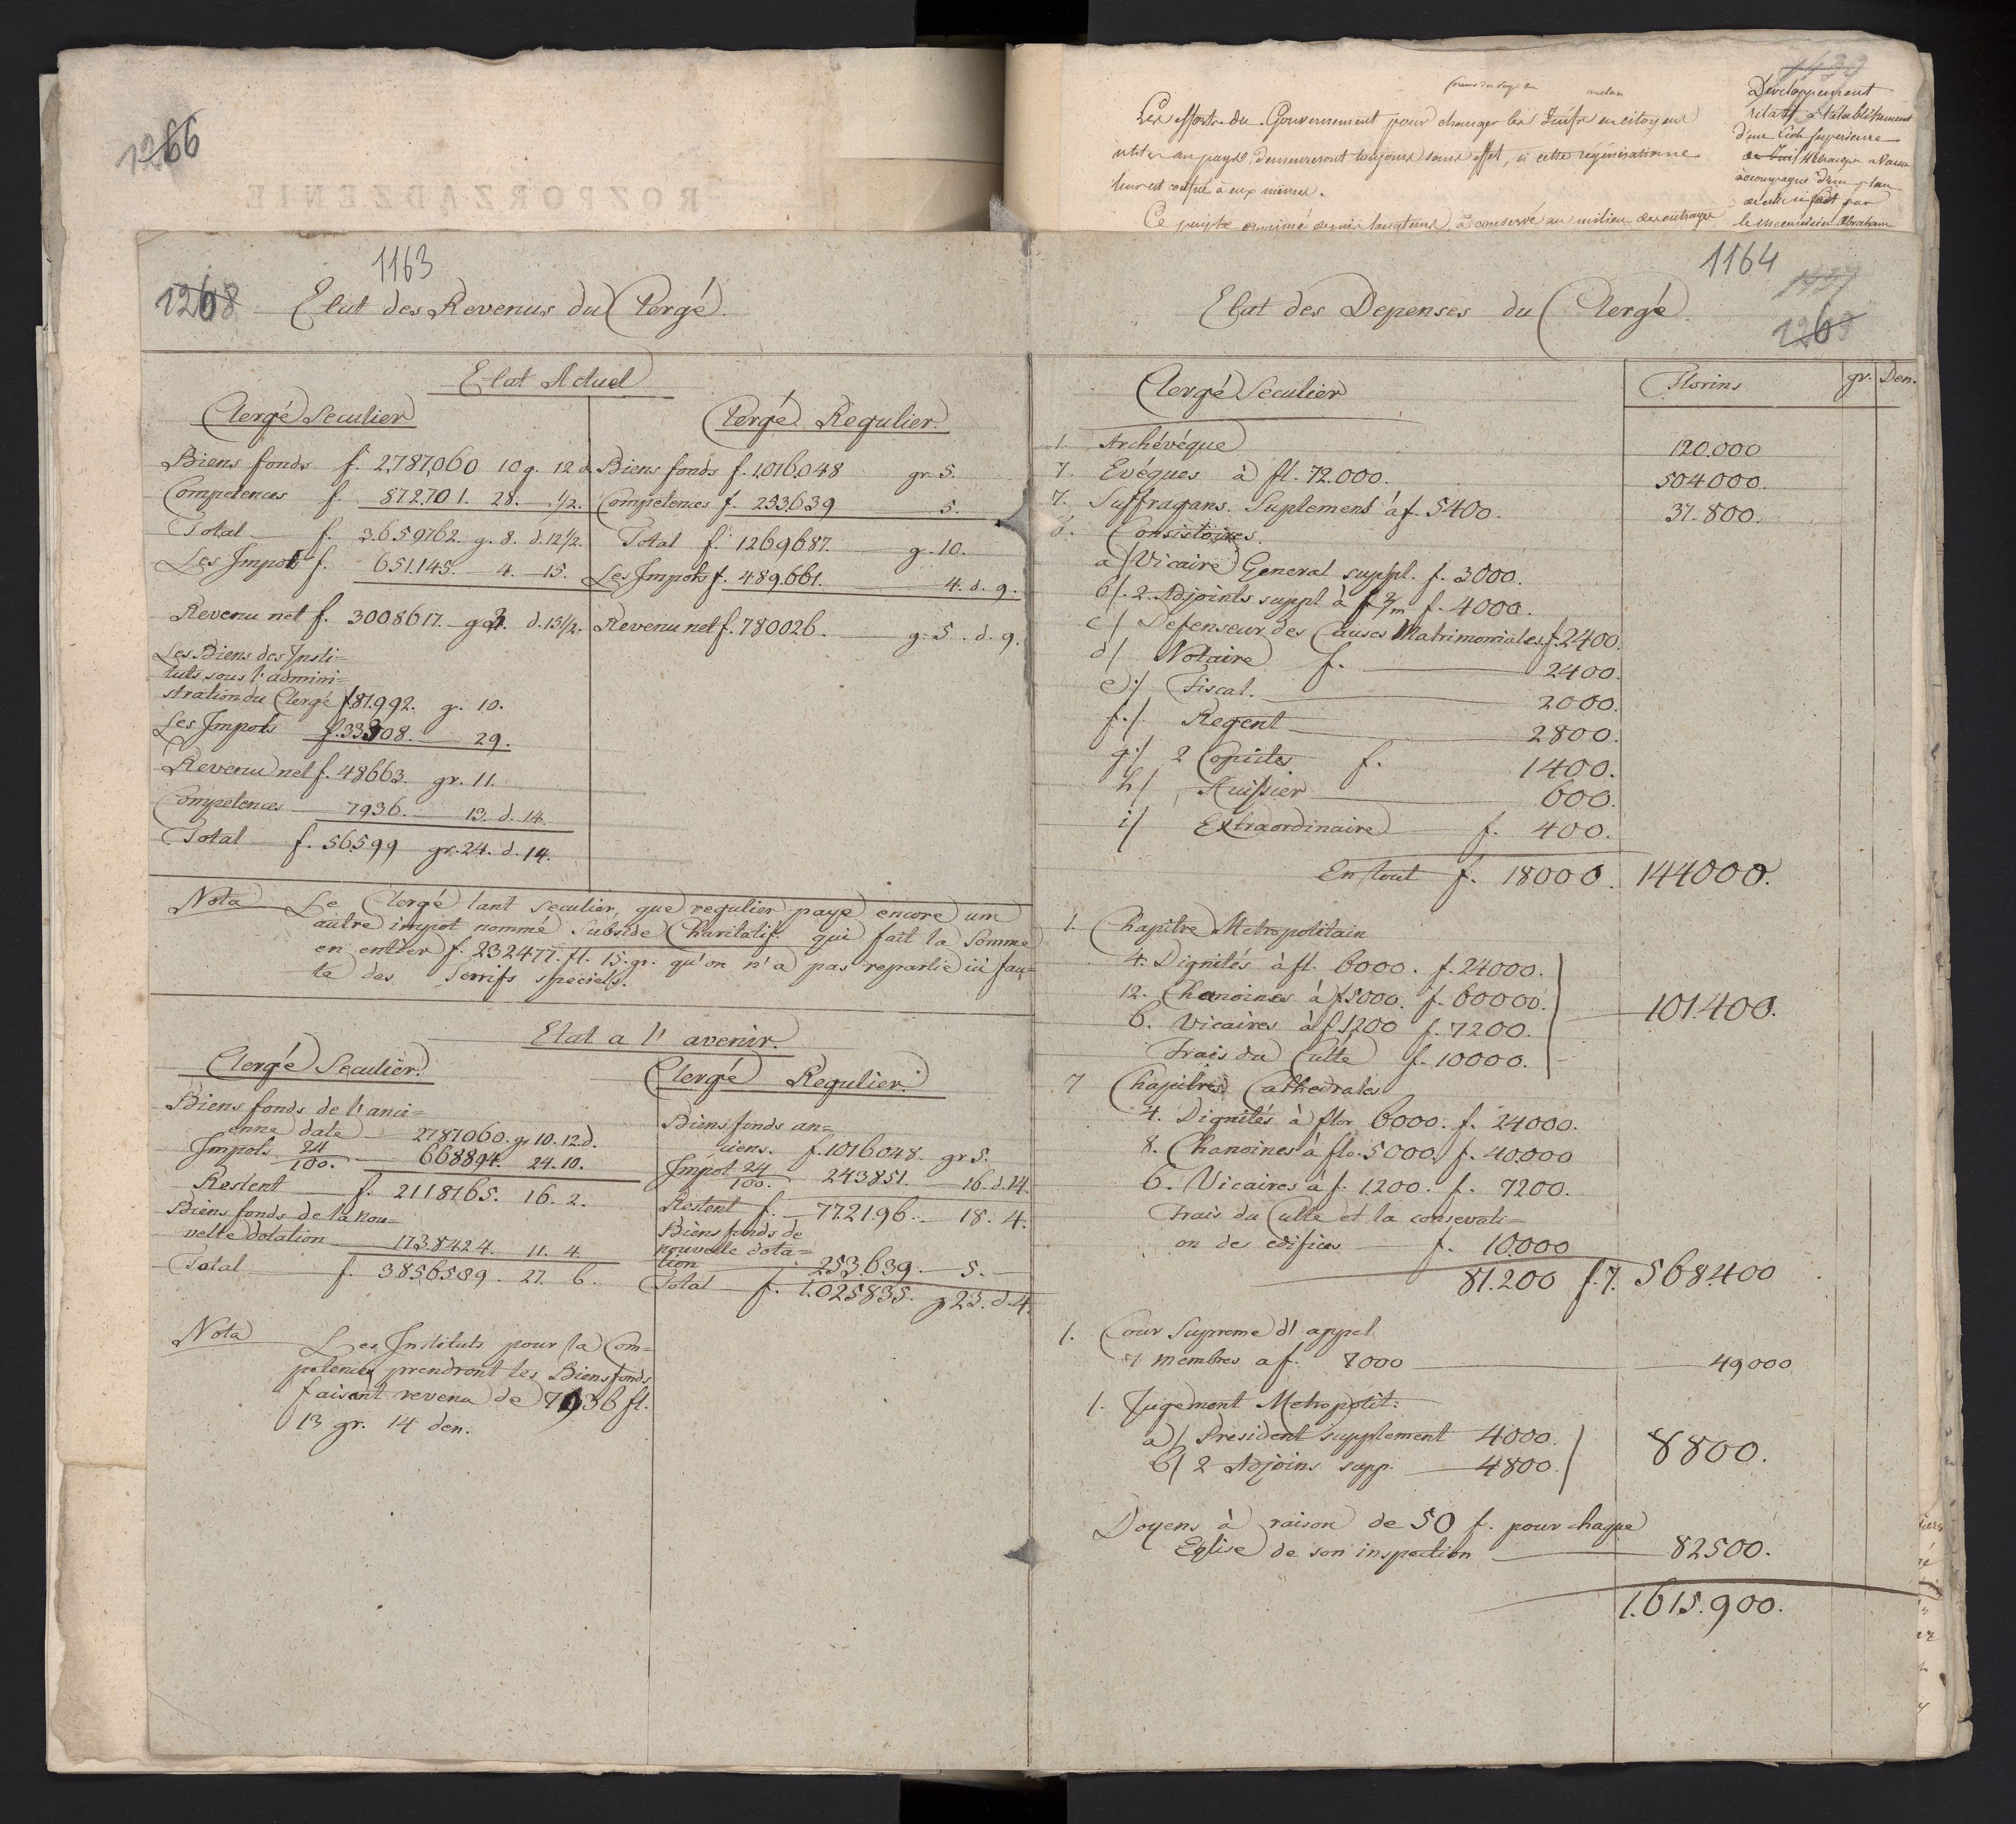 1266
ROZPORZĄDZENIE
1439
Les efforts du Gouvernement pour changer les Juifs en citoyens
utiles au pays, demeureront toujours sans effet, si cette régénération ne
leur est confiée à eux mêmes.
Ce peuple opprimé depuis longtems, a conservé au milieu des outrages
Developpement
relatif à l'établissement
d'une Ecole superieure
accompagné d'un plan
le mecanicien Abraham
1163
1268
Etat des Revenus du Clergé.
Etat Actuel
Clergé Seculier
Biens fonds f. 2,787,060 10 g. 12 d.
Competences f. 872.701. 28. — 1/2.
Total f. 3.659762. g. 8. d. 12 1/2.
Les Impots f. 651.145. 4. — 15.
Revenu net f. 3008617. g 2. d. 15 1/2.
Les Biens des Insti=
tuts sous l'admini=
stration du Clergé f. 81.992. g. 10.
Les Impots f. 33308. — 29.
Revenu net f. 48663. gr. 11.
Competences — 7936. — 13. d. 14.
Total f. 56599 gr. 24. d. 14.
Clergé Regulier.
Biens fonds f. 1.016.048 gr 5.
Competences f. 253.639 5.
Total f. 1269687. g. 10.
Les Impots f. 489.661. 4. d. 9.
Revenu net f. 780026. g. 5. d. 9.
Nota Le Clergé tant seculier, que regulier paye encore un
autre impot nommé Subside Charitatif qui fait la Somme
en entier f. 232477. fl. 15. gr. qu'on n'a pas repartie ici fau=
te des Terrifs speciels.
Etat a l'avenir.
Clergé Seculier.
Biens fonds de l'anci=
enne date — 2787060. gr 10. 12 d.
Impots 24/100. — 668894. 24. 10.
Restent f. 2118165. 16. 2.
Biens fonds de la nou=
velle dotation — 1738424. 11. 4.
Total f. 3856589. 27. 6.
Nota Les Instituts pour la Com=
petence prendront les Biens fonds
faisant revenu de 7936 fl.
13 gr. 14 den.
Clergé Regulier.
Biens fonds an=
ciens. f. 1016048. gr 5.
Impot 24/100. 243851. — 16. d. 14.
Restent f. — 772196. — 18. 4.
Biens fonds de
nouvelle dota=
tion — 253.639. — 5. —
Total f. 1.025835. g 23. d. 4.
1164
1437
1269
Etat des Depenses du Clergé.
Clergé Seculier
Florins gr. Den.
1. Archévéque 120.000
7. Evéques à fl. 72.000. 504000.
7. Suffragans. Suplement à f. 5400. 37.800.
8. Consistoires.
a/ Vicaire General suppl. f. 3000.
b/. 2. Adjoints suppl à f 2/m f. 4000.
c/ Defenseur des Causes Matrimoniales f. 2400.
d/ Notaire f. — 2400.
e/ Fiscal. — 2000.
f./ Regent — 2800.
g/ 2 Copistes f. 1400.
h/ Huissier — 600.
i/ Extraordinaire — f. 400.
En tout f. 18000. 144000.
1. Chapitre Metropolitain
4. Dignités à fl. 6000. f. 24000.
12. Chanoines à f 5000. f. 60000.
6. Vicaires à f 1200 f. 7200.
Frais du Culte f. 10000.
101.400.
7 Chapitres Cathedrales
4. Dignités à flor 6000. f. 24000.
8. Chanoines à flo. 5000. f. 40.000
6. Vicaires à f. 1200. f. 7200.
Frais du Culte et la consevati=
on des edifices — f. 10.000
81.200 f. 7. 568400
1. Cour Supreme d'appel
7 membres a f. 7000 — 49000
1. Jugement Metropolit:
a/ President supplement 4000.
b/ 2 Adjoins supp. — 4800.
8800.
Doyens à raison de 50 f. pour chaque
Eglise de son inspection — 82500.
1.615.900.